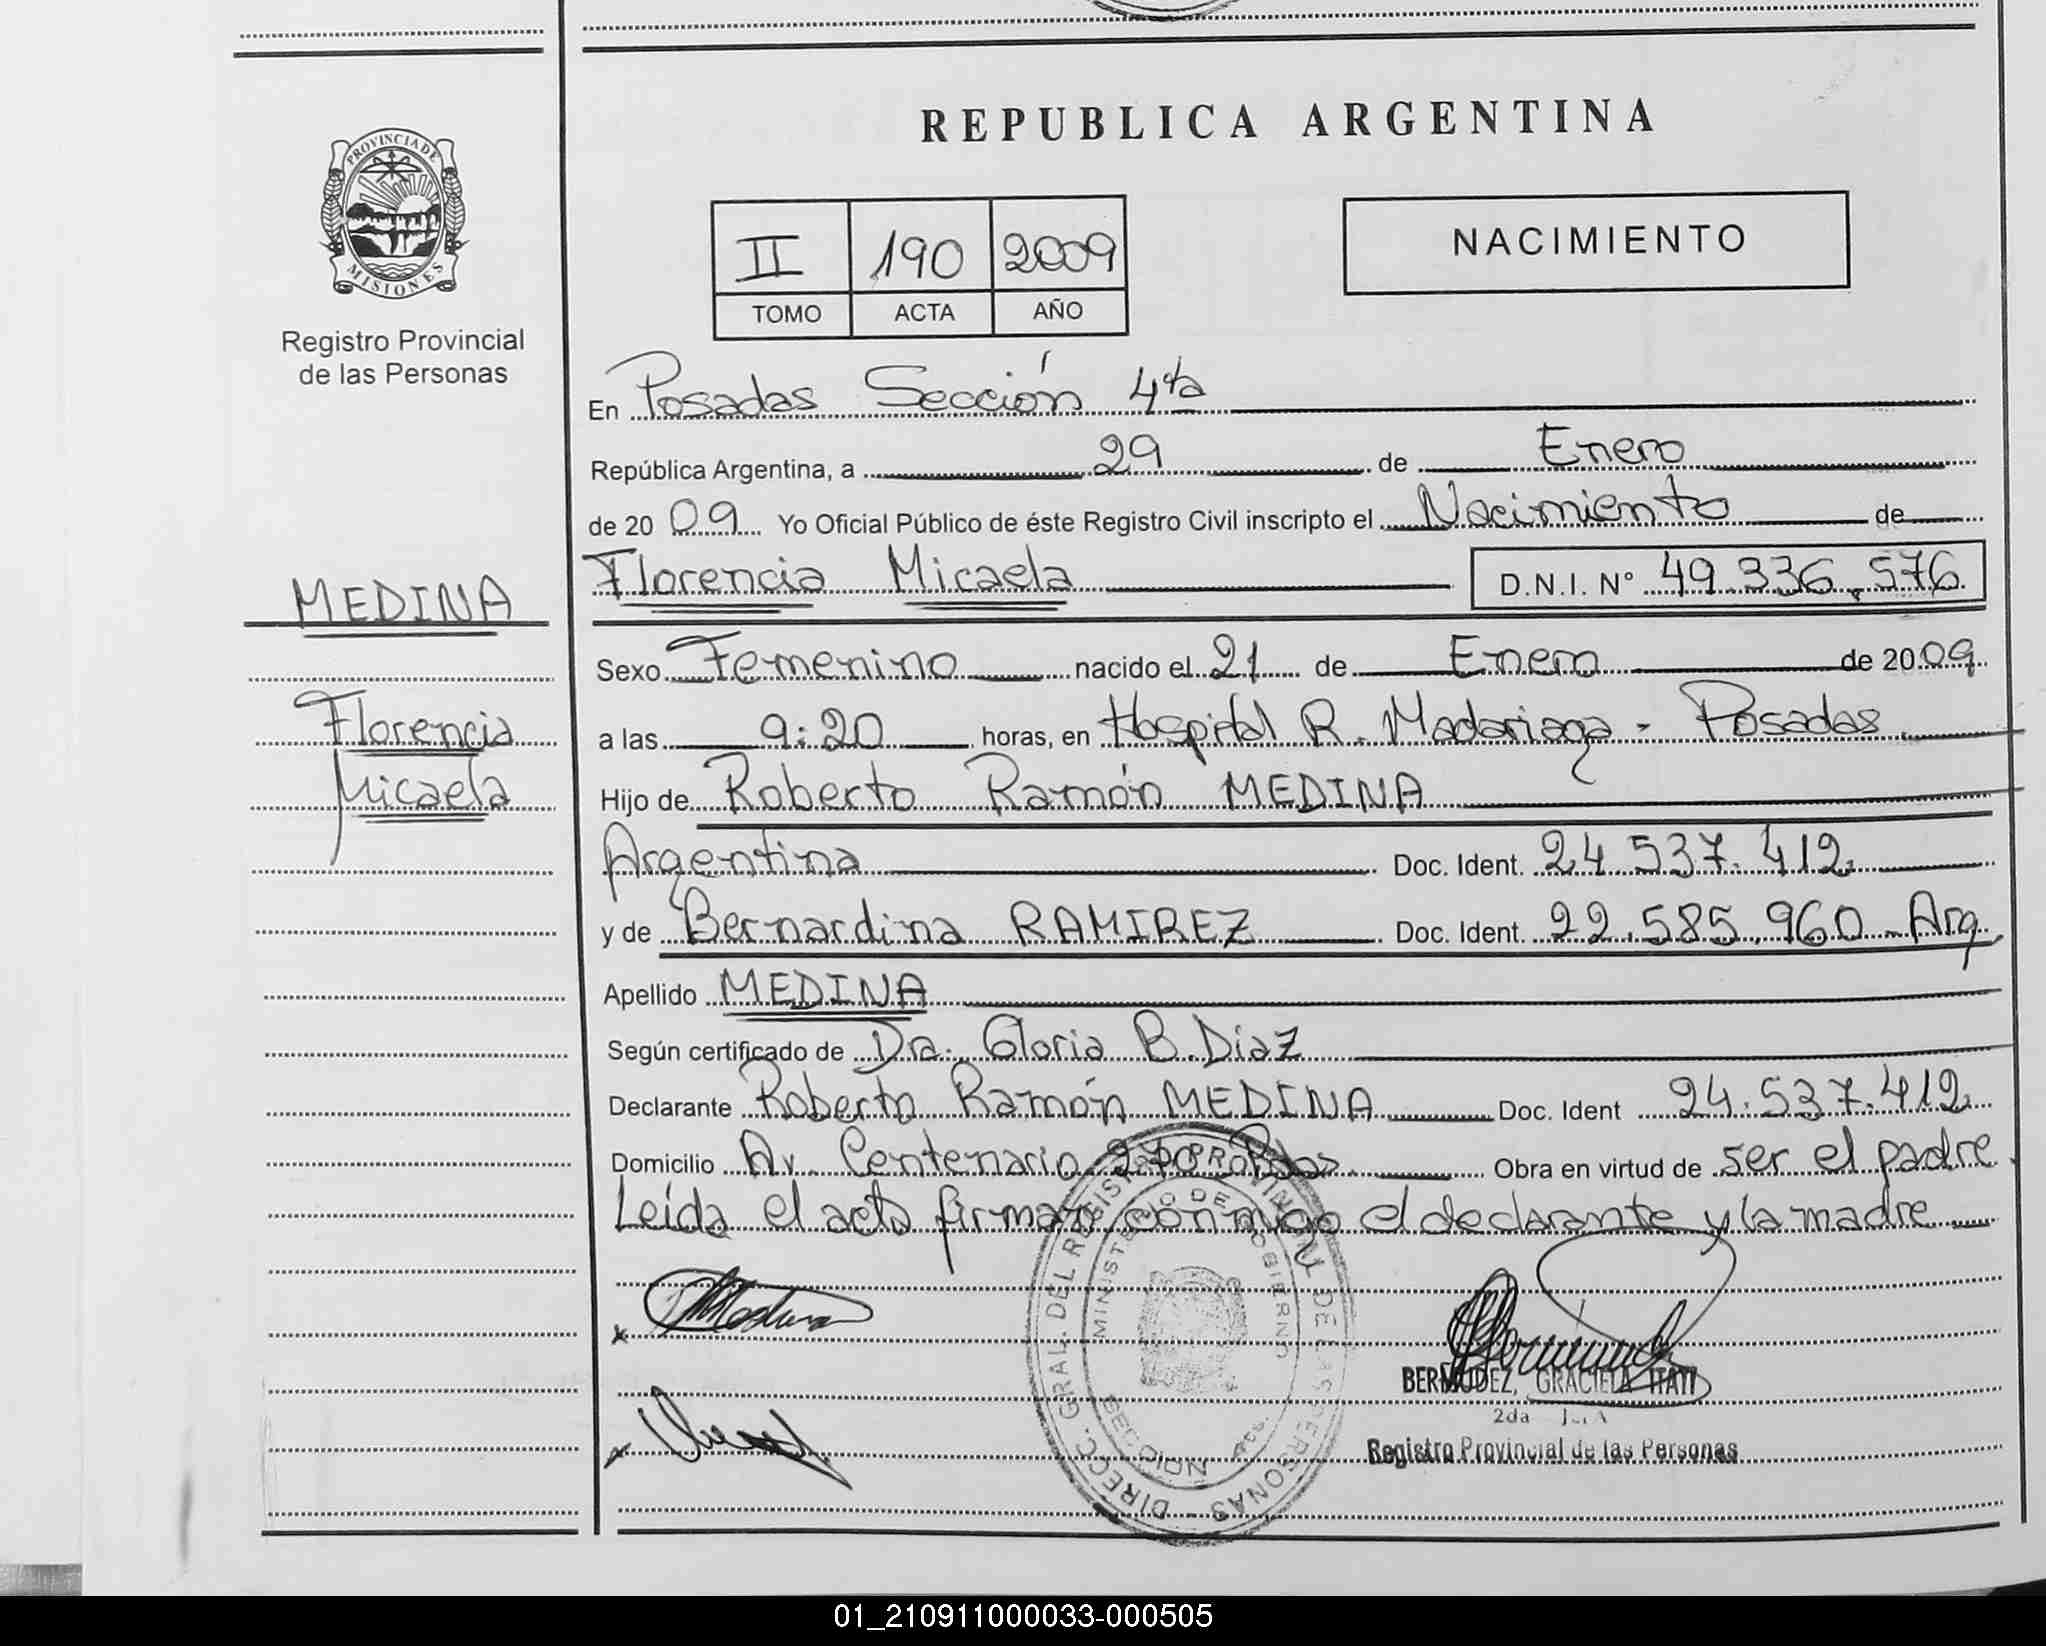 REPUBLICA ARGENTINA
PROVINCIA DE
MISIONES
Registro Provincial
de las Personas
II 190 2009
TOMO ACTA AÑO
NACIMIENTO
En Posadas Sección 4ta
República Argentina, a 29 de Enero
de 2009 Yo Oficial Público de éste Registro Civil inscripto el Nacimiento de
Florencia Micaela D.N.I. N° 49.336.576.
MEDINA
Florencia
Micaela
Sexo Femenino nacido el 21 de Enero de 2009
a las 9:20 horas, en Hospital R. Madariaga - Posadas
Hijo de Roberto Ramón MEDINA
Argentina Doc. Ident. 24.537.412.
y de Bernardina RAMIREZ Doc. Ident. 22.585.960 - Arg.
Apellido MEDINA
Según certificado de Dra. Gloria B. Diaz
Declarante Roberto Ramón MEDINA Doc. Ident 24.537.412.
Domicilio Av. Centenario Pdas. Obra en virtud de ser el padre.
Leída el acta firman conmigo el declarante y la madre
DIRECC. GRAL. DEL REGISTRO PROVINCIAL DE LAS PERSONAS
MINISTERIO DE GOBIERNO
SECCION
BERMUDEZ, GRACIELA ITATI
2da
Registro Provincial de las Personas
01_210911000033-000505